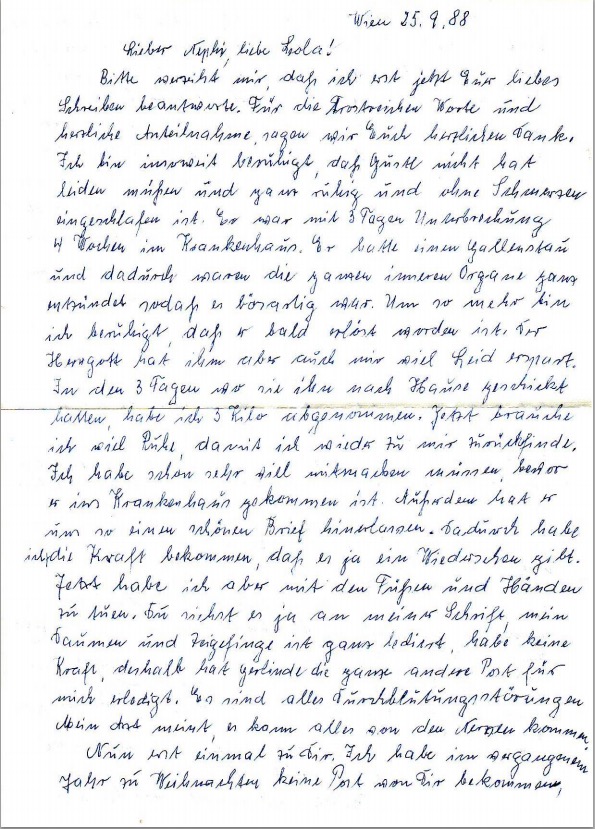 Wien 25.9.88
Lieber Nephi, liebe Leola!
Bitte verzeiht mir, daß ich erst jetzt Euer liebes
Schreiben beantworte. Für die Trostreichen Worte und
herzliche Anteilnahme, sagen wir Euch herzlichen Dank.
Ich bin insoweit beruhigt, daß Gustl nicht hat
leiden müßen und ganz ruhig und ohne Schmerzen
eingeschlafen ist. Er war mit 3 Tagen Unterbrechung
4 Wochen im Krankenhaus. Er hatte einen Gallenstau
und dadurch waren die ganzen inneren Organe ganz
entzündet sodaß es bösartig war. Um so mehr bin
ich beruhigt, daß er bald erlöst worden ist. Der
Herrgott hat ihm aber auch mir viel Leid erspart.
In den 3 Tagen wo sie ihn nach Hause geschickt
hatten, habe ich 3 Kilo abgenommen. Jetzt brauche
ich viel Ruhe, damit ich wieder zu mir zurückfinde.
Ich habe schon sehr viel mitmachen müssen, bevor
er ins Krankenhaus gekommen ist. Außrdem hat er
uns so einen schönen Brief hinerlassen. Dadurch habe
ich die Kraft bekommen, daß es ja ein Wiedersehen gibt.
Jetzt habe ich aber mit den Füßen und Händen
zu tuen. Du siehst es ja an meiner Schrift, mein
Daumen und Zeigefinge ist ganz ledirt, habe keine
Kraft, deshalb hat gerlinde die ganze andere Post für
mich erledigt. Es sind alles Durchblutungsstörungen
Mein Arzt meint, es kann alles von den Nerven kommen.
Nun erst einmal zu Dir. Ich habe im vergangenem
Jahr zu Weihnachten keine Post von Dir bekommen,